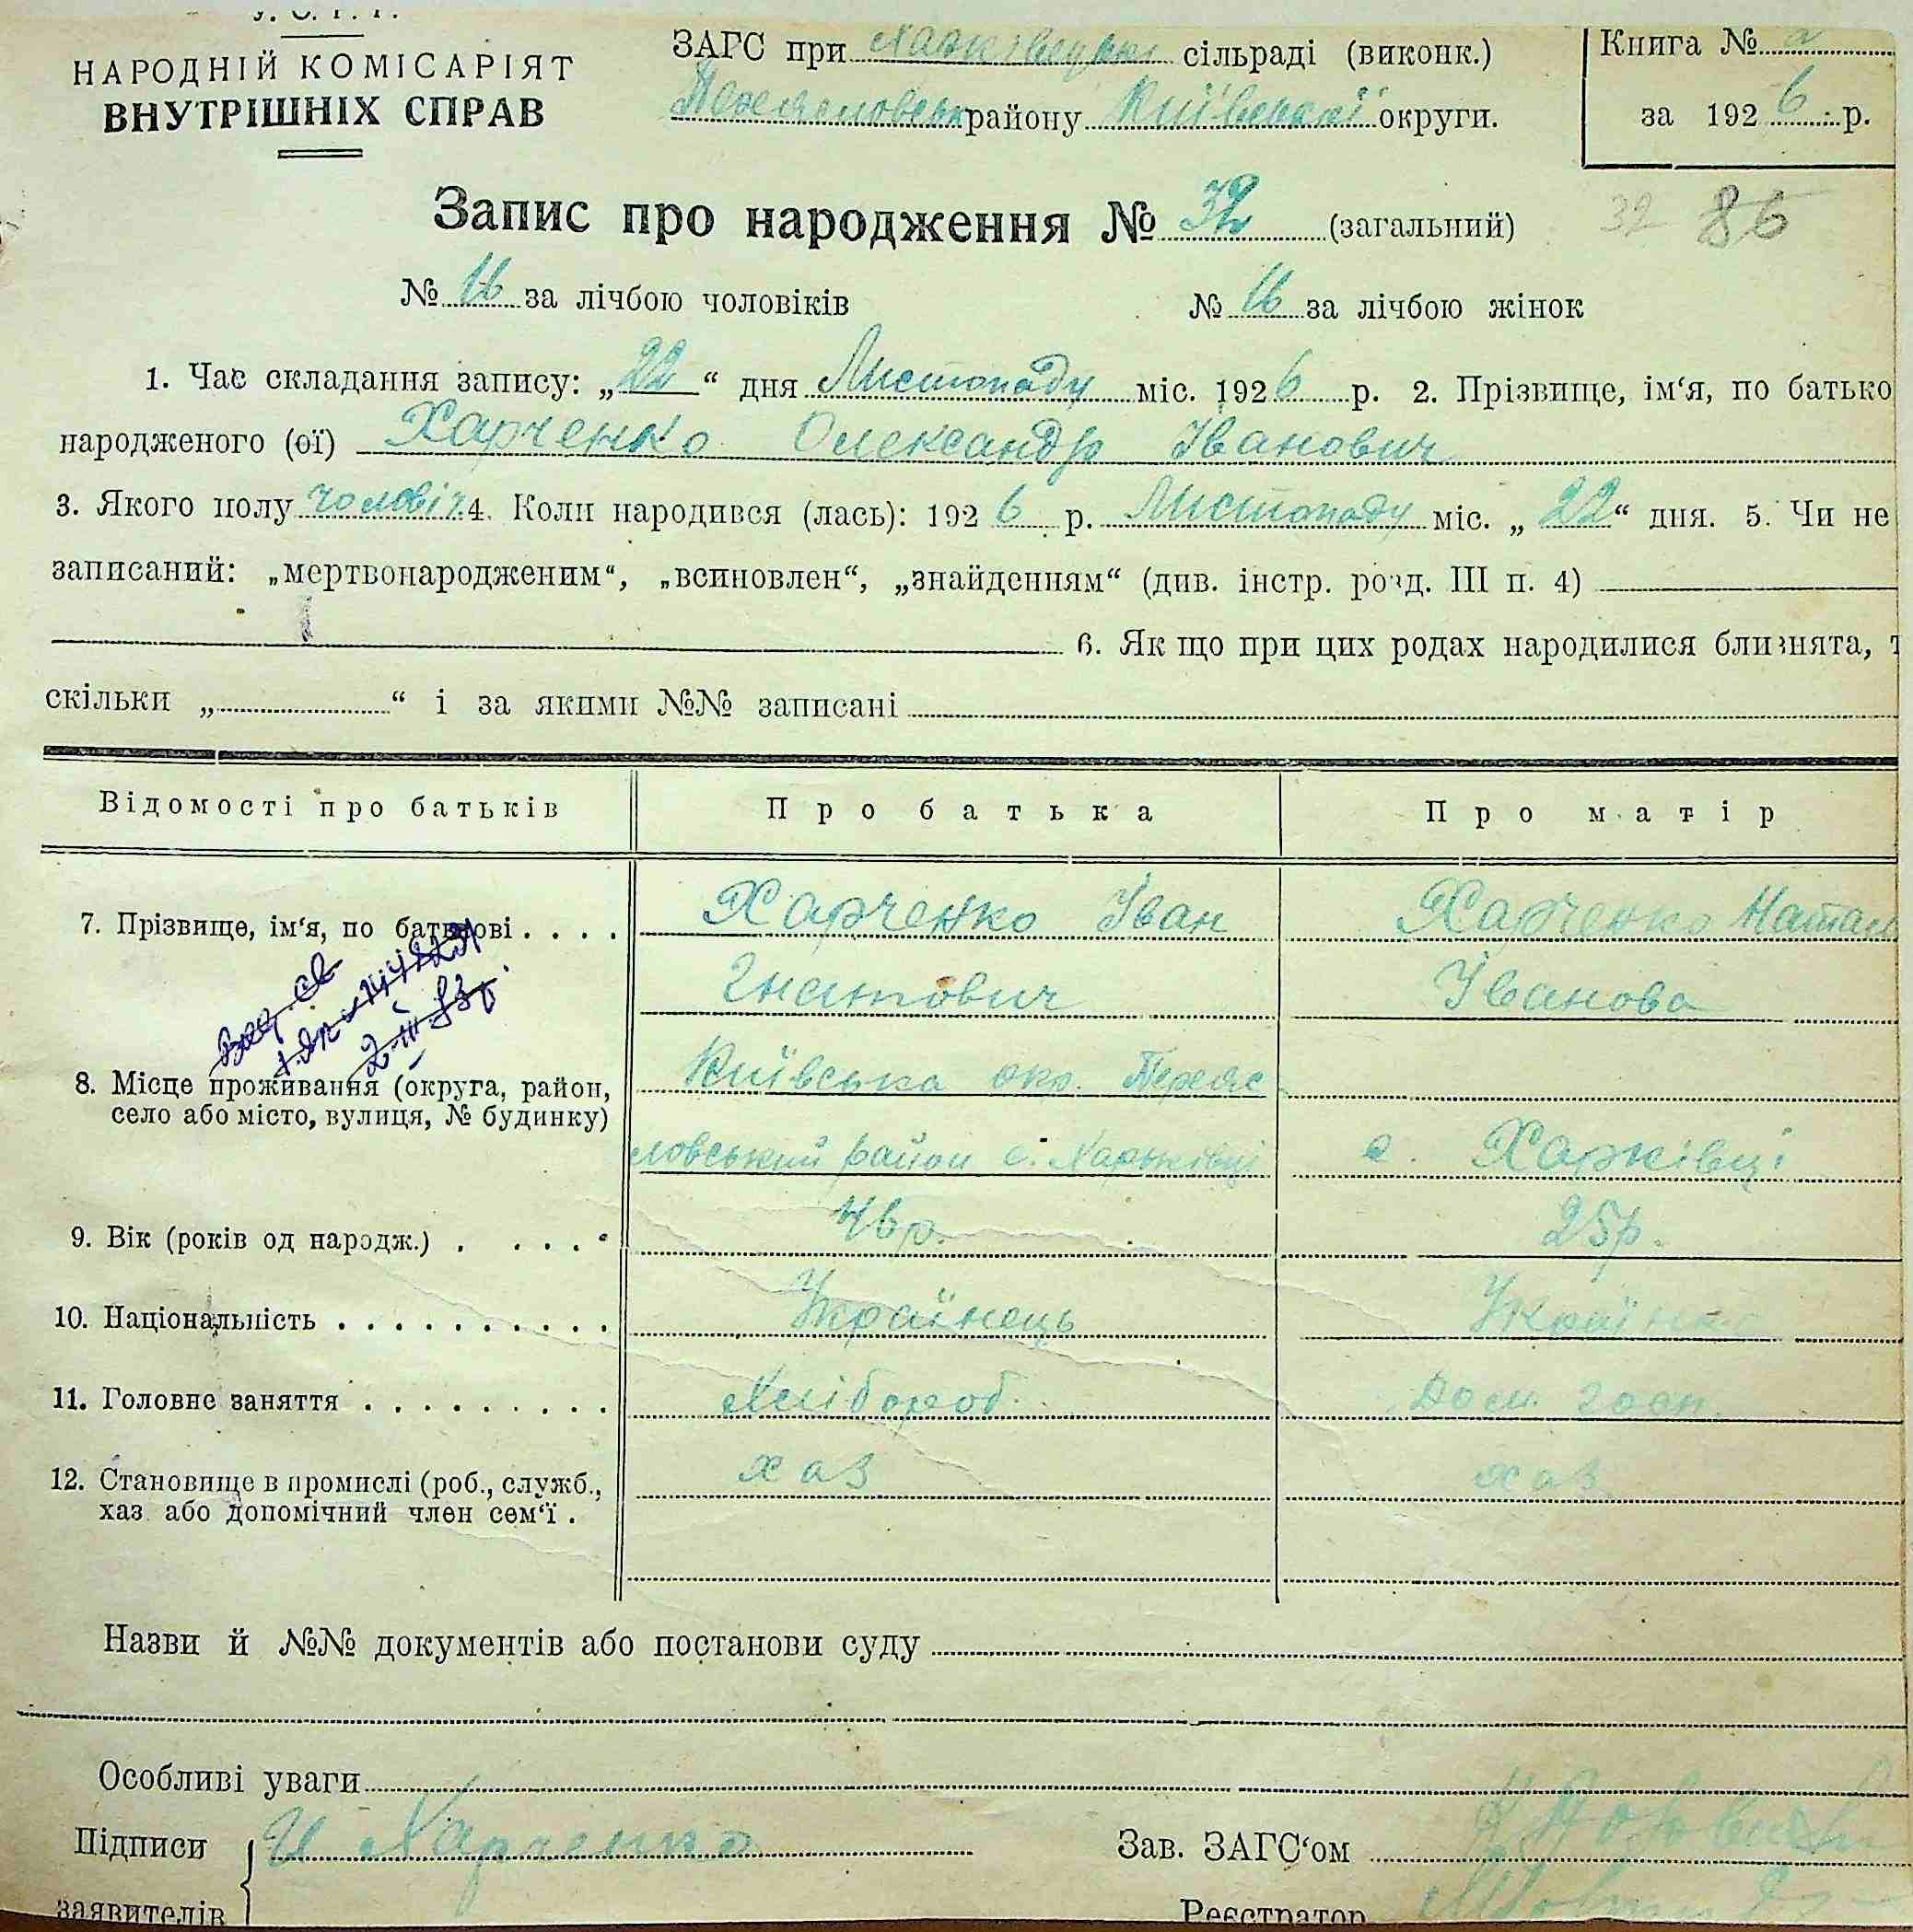 У. С. Р. Р.
НАРОДНІЙ КОМІСАРІЯТ
ВНУТРІШНІХ СПРАВ
ЗАГС при сільраді (виконк.)
району Київської округи.
Книга №
за 1926 р.
Запис про народження № 32 (загальний)
32 86
№ 16 за лічбою чоловіків № 16 за лічбою жінок
1. Час складання запису: „22“ дня Листопаду міс. 1926 р. 2. Прізвище, ім‘я, по батько
народженого (ої) Харченко Олександр Іванович
3. Якого полу чоловіч. 4. Коли народився (лась): 1926 р. Листопаду міс. „22“ дня. 5. Чи не
записаний: „мертвонародженим“, „всиновлен“, „знайденням“ (див. інстр. розд. III п. 4)
6. Як що при цих родах народилися близнята, т
скільки „ “ і за якими №№ записані
Відомості про батьків Про батька Про матір
7. Прізвище, ім‘я, по батькові . . . . Харченко Іван Харченко Натал
Гнатович Іванова
8. Місце проживання (округа, район, Київська окр. Переяс
село або місто, вулиця, № будинку)
ловський район с. Харьківці с. Харківці
9. Вік (років од народж.) . . . . . 25р.
10. Національність . . . . . . . . . . Українець Українка
11. Головне заняття . . . . . . . . . Хлібороб. Дом. госп.
12. Становище в промислі (роб., служб., хаз хаз
хаз або допомічний член сем‘ї .
Назви й №№ документів або постанови суду
Особливі уваги
Підписи И Харченко Зав. ЗАГС‘ом
заявителів Реєстратор